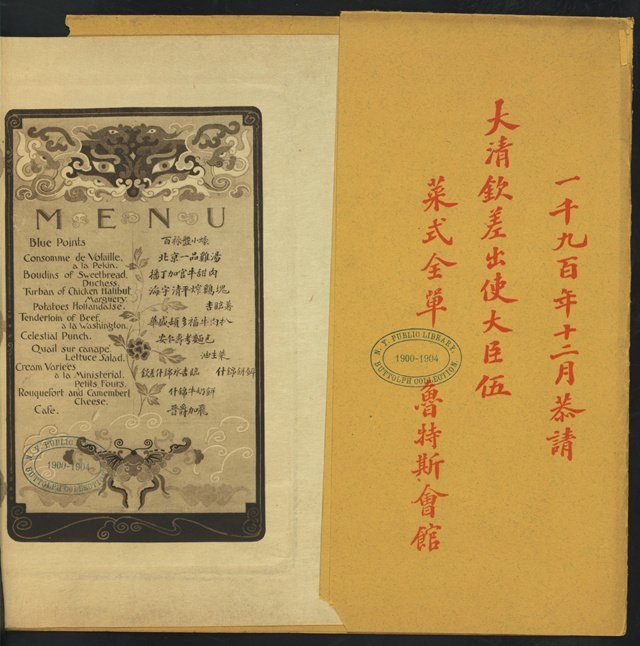 MENU
Blue Points 百祿盤小蠔
Consomme de Volaille, 北京一品雞湯
a la Pekin.
Boudins of Sweetbread, 播丁加官牛甜肉
Duchess.
Turban of Chicken Halibut 海宇清平炸鷄塊
Marguery.
Potatoes Hollandaise.
Tenderloin of Beef, 華盛頓多福牛肉扒
a la Washington.
Celestial Punch.
Quail sur canape 油生菜
Lettuce Salad.
Cream Varieés 什錦餅
à la Ministerial.
Petits Fours.
Rouquefort and Camembert 什錦牛奶餅
Cheese.
Cafe. 晋爵加啡
N. Y. PUBLIC
1900-1904
一千九百年十二月恭請
大清欽差出使大臣伍
菜式全單 魯特斯會館
N. Y. PUBLIC LIBRARY,
1900-1904
BUTTOLPH COLLECTION